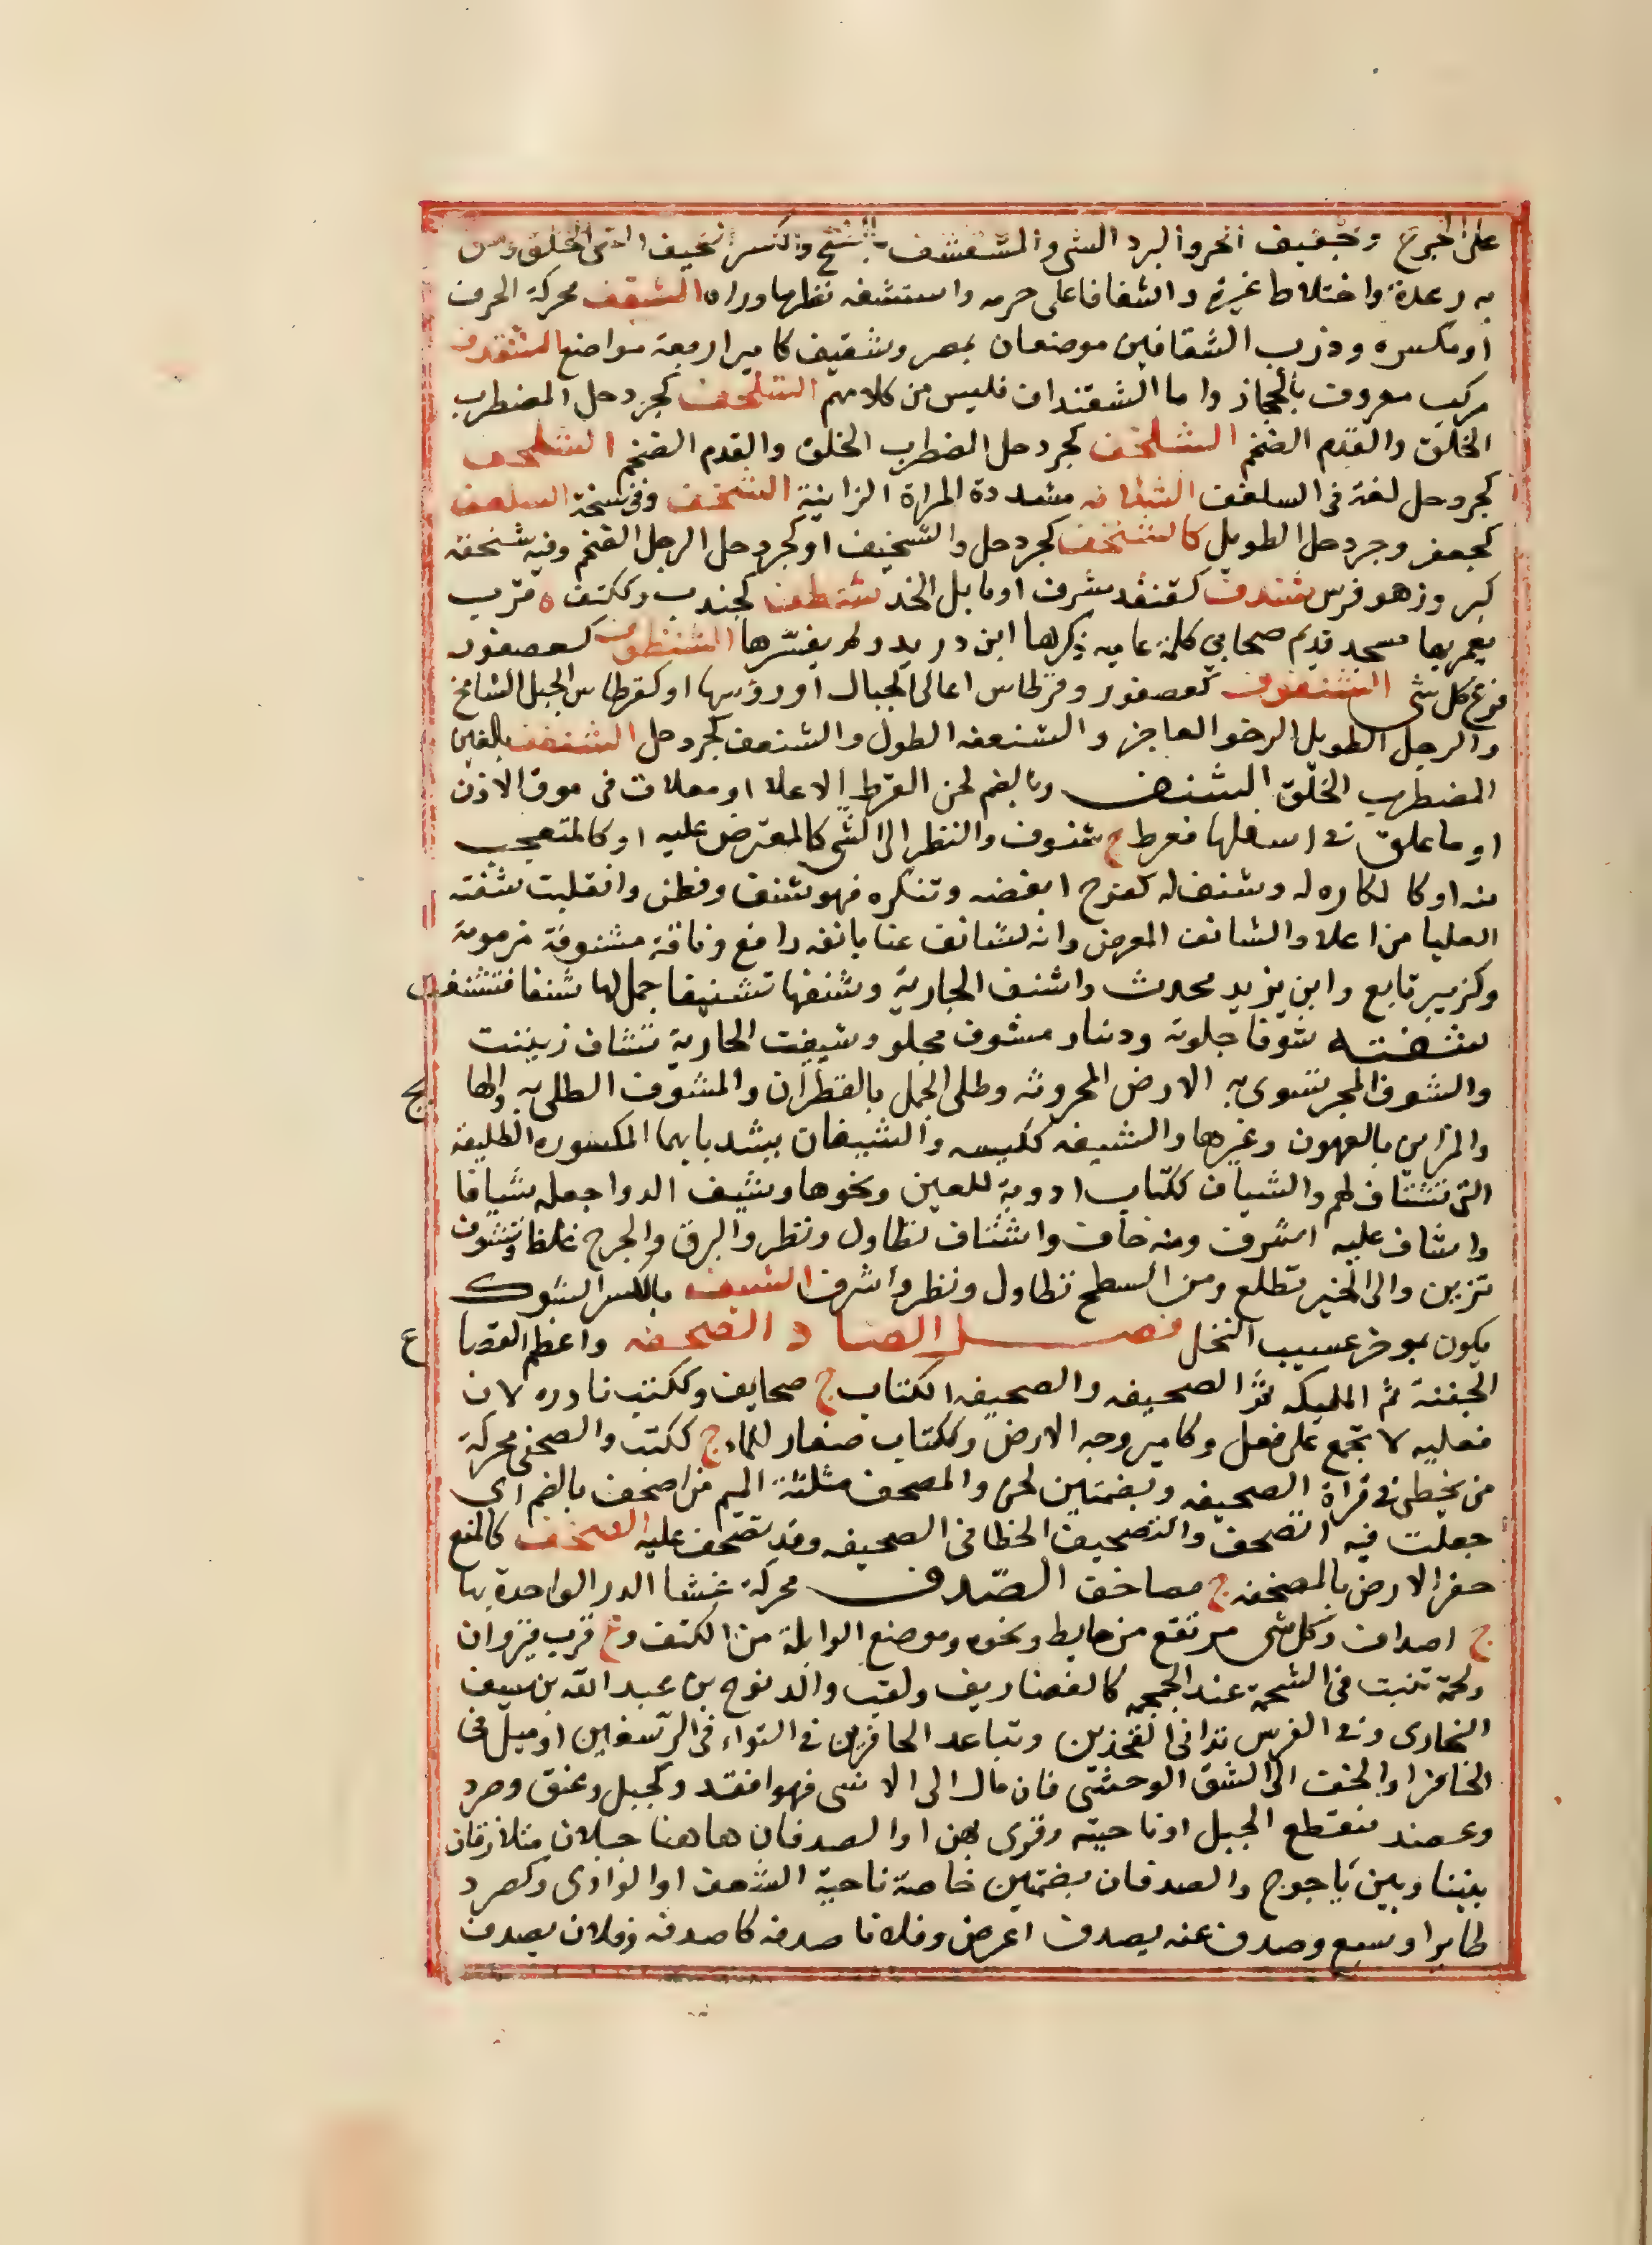 على الجرح وتجفيف الحر والبرد الشى والشفشف بالفتح والكسر نخيف الخلق ومن
به رعدة واختلاط غيرة واشفافا على حرمه واستشفه نظر ما وراه الشقف محركة الخزف
او مكسره ودرب الشقافين موضعان بمصر وشقيف كامير اربعة مواضع الشقدف
مركب معروف بالحجاز واما الشقنداف فليس من كلامهم الشلحف كجردحل المضطرب
الخلق والقدم الضخم الشلخف كجردحل المضطرب الخلق والقدم الضخم الشلخف
كجردحل لغة فى السلغف الشلافه مشددة المراة الزانية الشنحف وفى نسخة السلعف
كجعفر وجردحل الطويل كالشنخف كجردحل والشخيف او كجردحل الرجل الضخم وفيه شنخفة
كبر وزهو فرس شندف كقنفذ مشرف او مايل الخد شنطف كجندب وككتف ه قرب
يعمر بها مسجد قديم صحابى كلمة عامية ذكرها ابن دريد ولم يفسرها الشنظوف كعصفور
فرع كل شى الشنعوف كعصفور وقرطاس اعالى الجبال او رؤسها او كقرطاس الجبل الشامخ
والرجل الطويل الرخو العاجز والشنعفه الطول والشنعف كجردحل الشنغف بالغين
المضطرب الخلق الشنف وبالضم لحن القرط الاعلا او معلاق فى موق الاذن
او ما علق فى اسفلها فقرط ج شنوف والنظر الى الشى كالمعترض عليه او كالمتعجب
منه او كالكاره له وشنف له كفرح ابغضه وتنكره فهو شنف وفطن وانقلبت شفته
العليا من اعلا والشانف المعرض وانه لشانف عنا بانفه رافع وناقة مشنوفة مزمومة
وكزبير تابع وابن يزيد محدث واشنف الجارية وشنفها تشنيفا جعل لها شنفا فتشنفت
شفته شوفا جلوته ودينار مشوف مجلو وشيفت الجارية تشاف زينت
والشوف المجر تسوى به الارض المحروثة وطلى الجمل بالقطران والمشوف المطلى به والها يج
والمزين بالعهون وغيرها والشيفه ككيسه والشيفان بشد يايهما المكسوره الطليعة
التى تشتاف لهم والشياف ككتاب ادوية للعين ونحوها وشيف الدوا جعله شيافا
واشاف عليه اشرف ومنه خاف واشتاف تطاول ونظر والبرق والجرح غلظ وتشوف
تزين والى الخير تطلع ومن السطح تطاول ونظر واشرف الشيف بالكسر الشوك
يكون بموخر عسيب النخل فصل الصاد الصحفه واعظم القصاع
الجفنة ثم المليكه ثم الصحيفه والصحيفه الكتاب ج صحايف وككتب نادره لان
فعليه لا تجمع على فعل وكامير وجه الارض وككتاب صغار للماء ج ككتب والصحفى محركة
من يخطى فى قراة الصحيفه وبضمتين لحن والمصحف مثلثة الميم من اصحف بالضم اى
جعلت فيه الصحف والتصحيف الخطا فى الصحيفه وقد تصحف عليه الصخف كالمنع
حفر الارض بالمصخفه ج مصاخف الصدف محركة غشا الدر الواحدة بها
ج اصداف وكل شى مرتفع من حايط ونحوه وموضع الوابلة من الكتف وة قرب قيروان
ولحمة تنبت فى الشجة عند الجمجمه كالغضاريف ولقب والد نوح بن عبد الله بن سيف
البخارى وفى الفرس تدانى الفخذين وتباعد الحافرين فى التواء فى الرسغين او ميل فى
الحافر او الخف الى الشق الوحشى فان مال الى الانسى فهو افقد وكجبل وعنق وصرد
وعضد منقطع الجبل او ناحيته وقرى بهن او الصدفان هاهنا جبلان متلازقان
بيننا وبين ياجوج والصدفان بضمتين خاصة ناحية الشعف او الوادى وكصرد
طاير او سبع وصدف عنه يصدف اعرض وفلانا صدفه كاصدفه وفلان يصدف